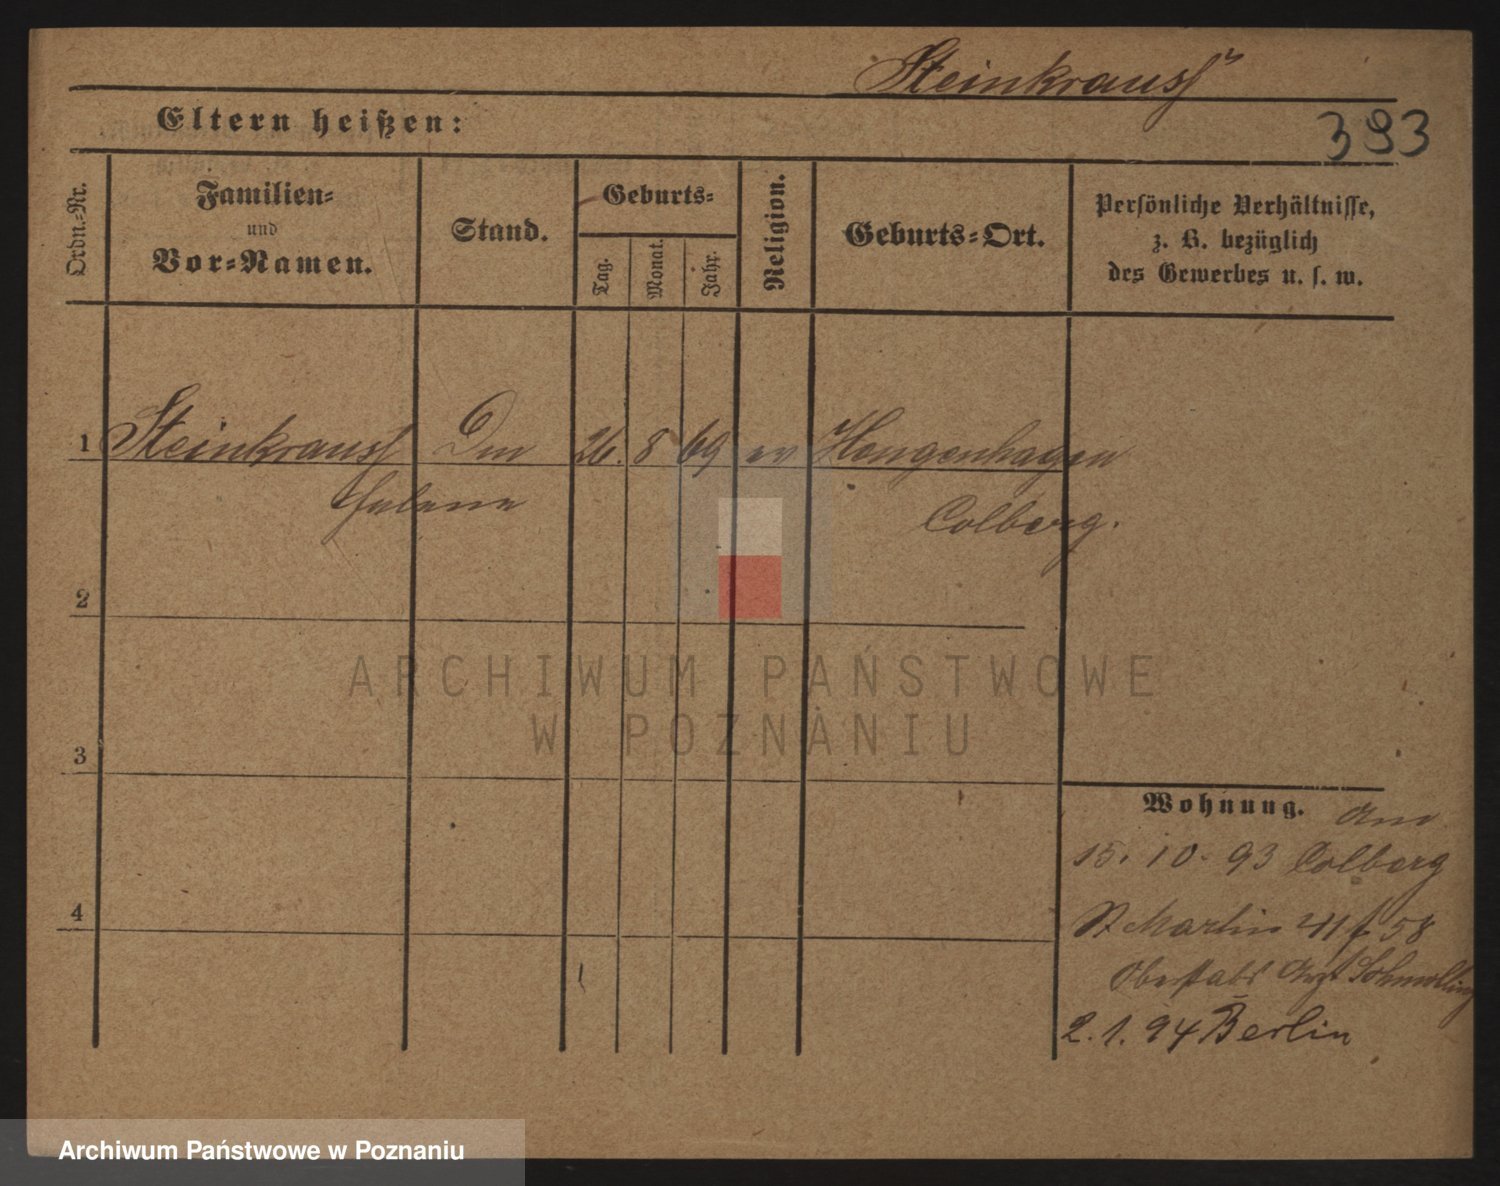 Steinkrauss
Eltern heißen:
393
Ordn.-Nr.
Familien-
und
Vor-Namen.
Stand.
Geburts-
Tag.
Monat.
Jahr.
Religion.
Geburts-Ort.
Persönliche Verhältnisse,
z. B. bezüglich
des Gewerbes u. s. w.
1 Steinkrauss 26. 8 69 ev Hengenhagen
Helene Colberg.
2
3
4
Wohnung. am
15. 10. 93 Colberg
St Martin 41 f 58
Oberstabs Arzt Schmolling
2. 1. 94 Berlin
ARCHIWUM PAŃSTWOWE
W POZNANIU
Archiwum Państwowe w Poznaniu